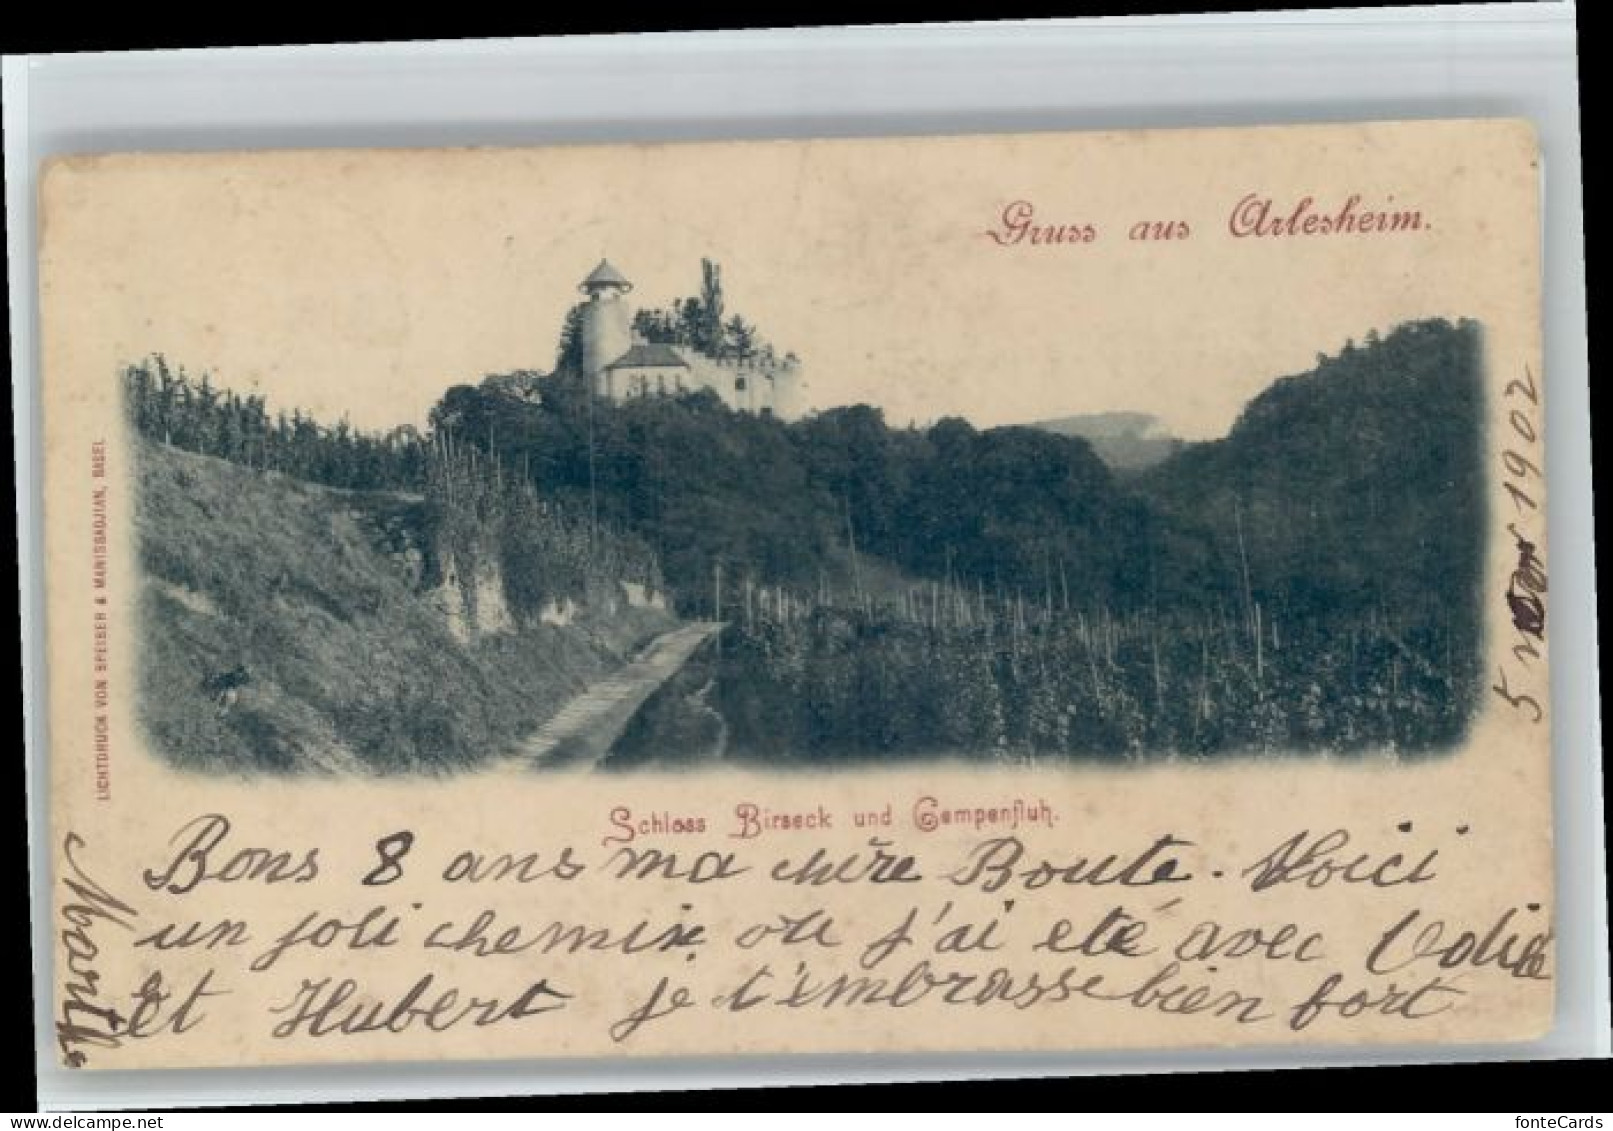 Gruss aus Arlesheim.
LICHTDRUCK VON SPEISER & MANISSADJIAN, BASEL
5 1902
Schloss Birseck und Gempenfluh.
Bons 8 ans ma chère Boute. Voici
un joli chemin où j'ai été avec Odile
et Hubert je t'embrasse bien fort
Marthe
www.delcampe.net
fonteCards